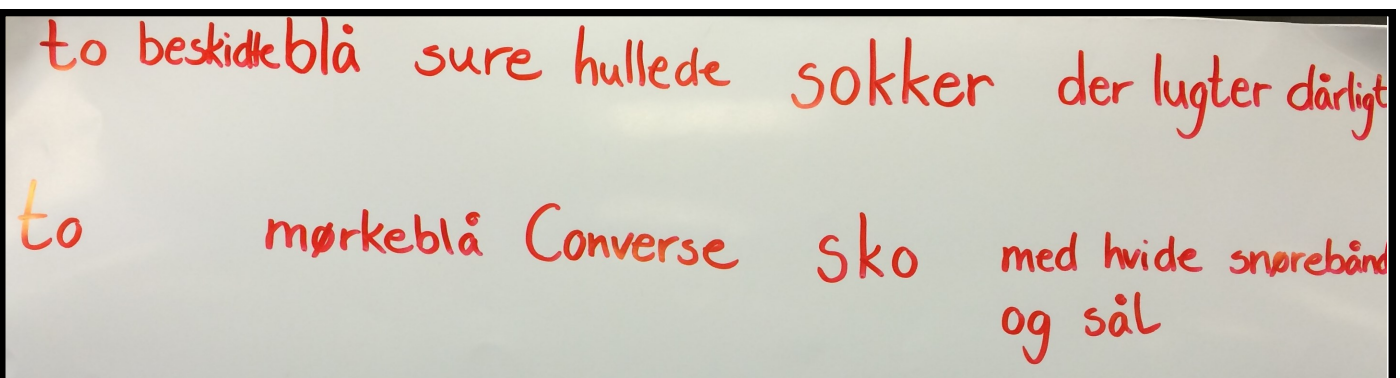 to beskidte blå sure hullede sokker der lugter dårligt
to mørkeblå Converse sko med hvide snørebånd
og sål